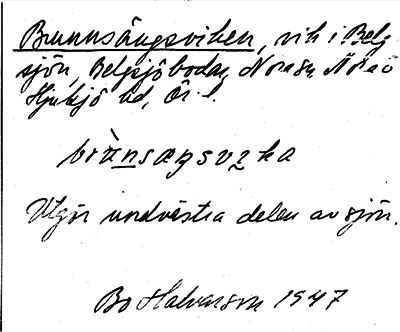 Brunnsängsviken, vik i Belg
sjön, Belgsjöbodar, Nora sn, Nora o
Hjulsjö bd, Ör. l.
brùnsæŋsvika
Utgör nordvästra delen av sjön.
Bo Halvarson 1947